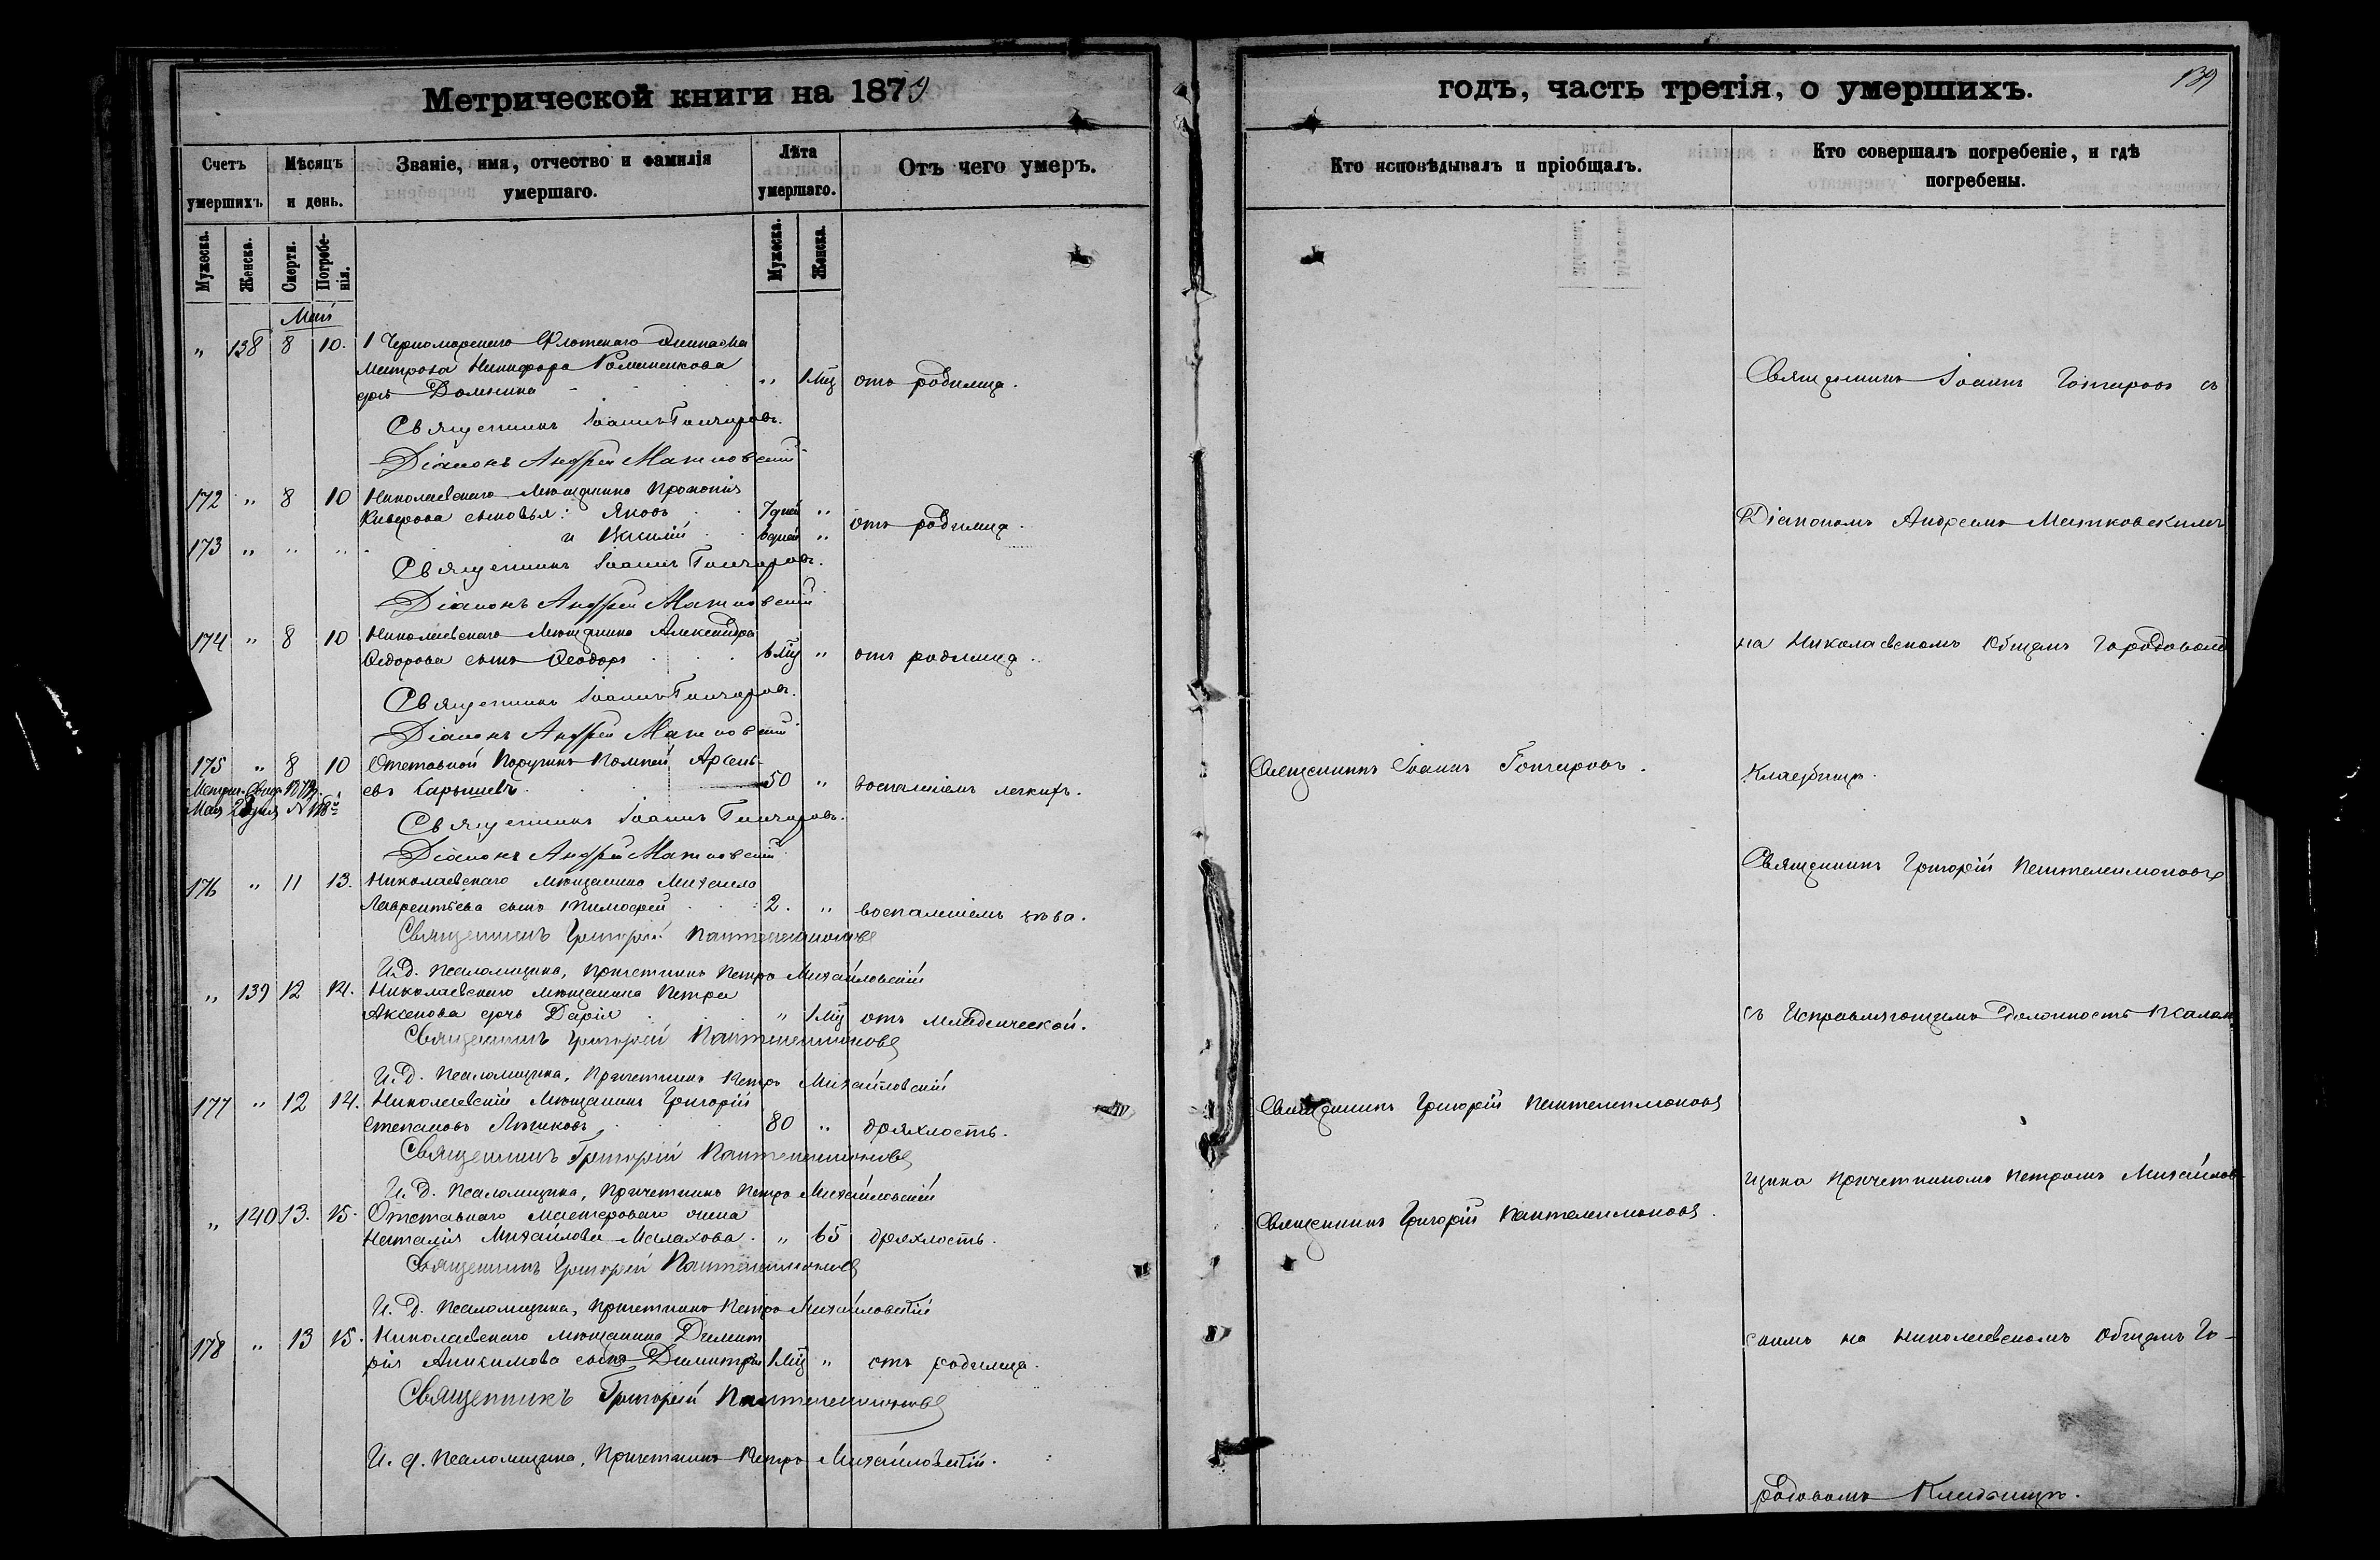 Метрической книги на 1879
Счетъ умершихъ
Мѣсяцъ и день.
Званіе, имя, отчество и фамилія умершаго.
Лѣта умершаго.
Отъ чего умеръ.
Мужеска. Женска. Смерти. Погребенія. Мужеска. Женска.
Май
" 138 8 10. 1 Черноморскаго Флотскаго Экипажа
матроса Никифора
дочь Домникия " 1 мц отъ родимца.
Священникъ Іоаннъ Гончаровъ.
Діаконъ Андрей Матковскій
172 " 8 10 Николаевскаго мѣщанина Прокопія
сыновья: Яковъ 7 дней "
отъ родимца.
173 " " " и Василій 6 дней "
Священникъ Іоаннъ Гончаровъ.
Діаконъ Андрей Матковскій
174 " 8 10 Николаевскаго мѣщанина Александра
Федорова сынъ Ѳеодоръ 6 мц " отъ родимца.
Священникъ Іоаннъ Гончаровъ.
Діаконъ Андрей Матковскій
175 " 8 10 Отставной Поручикъ Арсень-
евъ Карышевъ 50 " воспаленіемъ легкихъ.
Мая
Священникъ Іоаннъ Гончаровъ.
Діаконъ Андрей Матковскій
176 " 11 13. Николаевскаго мѣщанина Михаила
Лаврентьева сынъ Тимофей 2. " воспаленіемъ зѣва.
Священникъ Григорій Пантелеимоновъ
И. д. Псаломщика, Причетникъ Петръ Михайловскій
" 139 12 14. Николаевскаго мѣщанина Петра
Аксенова дочь Дарія " 1 мц отъ младенческой.
Священникъ Григорій Пантелеимоновъ
И. д. Псаломщика, Причетникъ Петръ Михайловскій
177 " 12 14. Николаевскій мѣщанинъ Григорій
Степановъ 80 " дряхлость.
Священникъ Григорій Пантелеимоновъ
И. д. Псаломщика, Причетникъ Петръ Михайловскій
" 140 13. 15. Отставнаго мастероваго жена
Наталія Михайлова Малахова. " 65 дряхлость.
Священникъ Григорій Пантелеимоновъ
И. д. Псаломщика, Причетникъ Петръ Михайловскій
178 " 13 15. Николаевскаго мѣщанина Димит
рія Аникимова сынъ Димитрій 1 мц " отъ родимца.
Священникъ Григорій Пантелеимоновъ
И. д. Псаломщика, Причетникъ Петръ Михайловскій.
годъ, часть третія, о умершихъ.
139
Кто исповѣдывалъ и пріобщалъ.
Кто совершалъ погребеніе, и гдѣ погребены.
Священникъ Іоаннъ Гончаровъ съ
Діакономъ Андреемъ Матковскимъ
на Николаевскомъ Общемъ Городовомъ
Священникъ Іоаннъ Гончаровъ.
Кладбищѣ.
Священникъ Григорій Пантелеимоновъ
съ Исправляющимъ Должность Псалом
Священникъ Григорій Пантелеимоновъ
щика Причетникомъ Петромъ Михайлов-
Священникъ Григорій Пантелеимоновъ.
скимъ на Николаевскомъ Общемъ Го-
родовомъ Кладбищѣ.